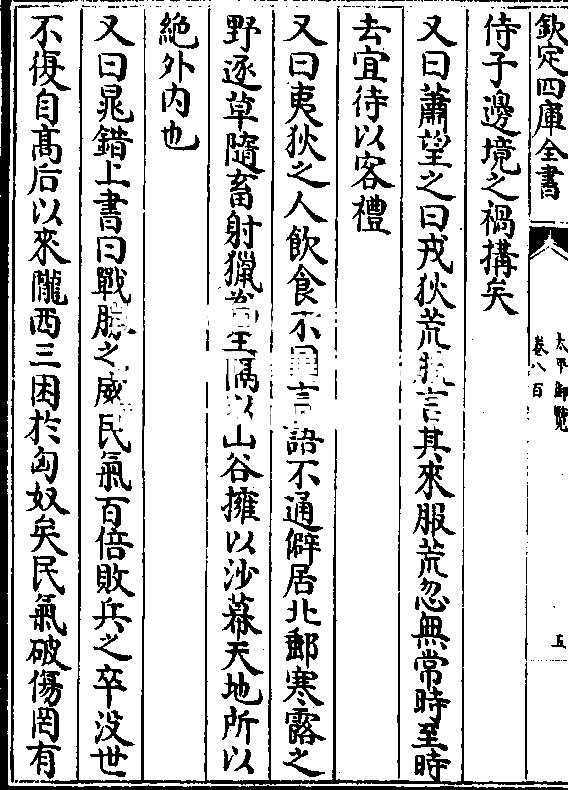 欽定四庫全書
太平御覽
卷八百
五
侍子邊境之禍搆矣
又曰蕭望之曰戎狄荒言其來服荒忽無常時至時
去宜待以客禮
又曰夷狄之人飲食不言語不通僻居北郵寒露之
野逐草隨畜射獵為生隔以山谷擁以沙幕天地所以
絶外内也
又曰晁錯上書曰戰勝之威民氣百倍敗兵之卒没世
不復自髙后以來隴西三困於匈奴矣民氣破傷罔有